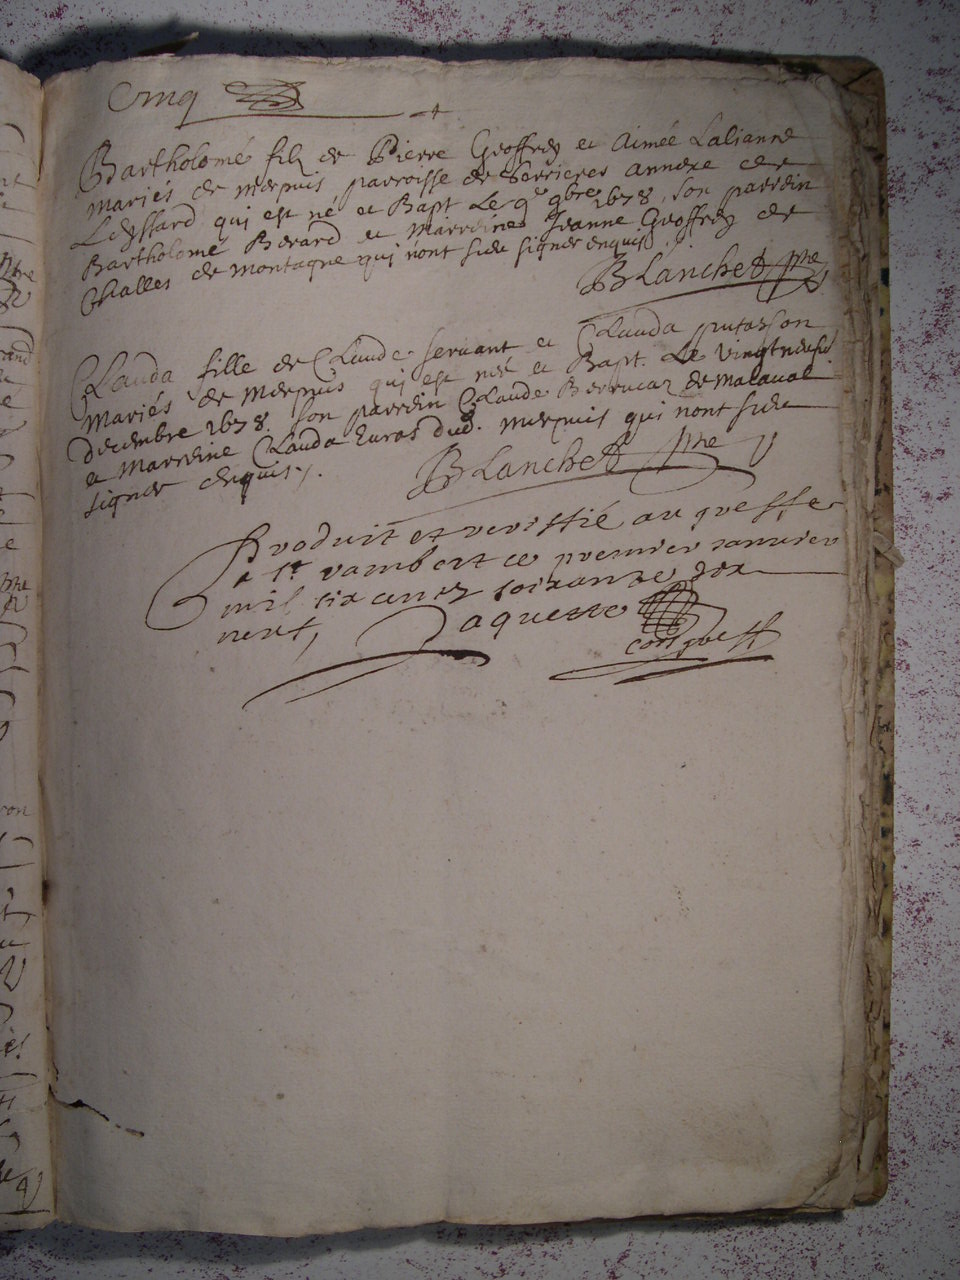 Cinq
Bartholomé filz de Pierre Geoffrey et Aimée Lalianne
mariés de merpuis parroisse de Serrieres annexe de
Leyssard qui est né et Bapt Le 9e 9bre 1678, son parrein
Bartholomé Berard et marreine Jeanne Geoffrey de
Challes de montagne qui n'ont sceu signer enquis
BLanchet pbre
CLauda fille de CLaude servant et CLauda putasson
mariés de merpuis qui est née et Bapt. Le vingtneufe
decembre 1678. son parrein CLaude Berrucaz de malaval
et marreine CLauda Euras dud. merpuis qui nont sceu
signer enquis
BLanchet pbre
Produit et veriffié au greffe
a St rambert ce premier janvier
mil six cens soixante dix
neuf,
Jaquette
com greff